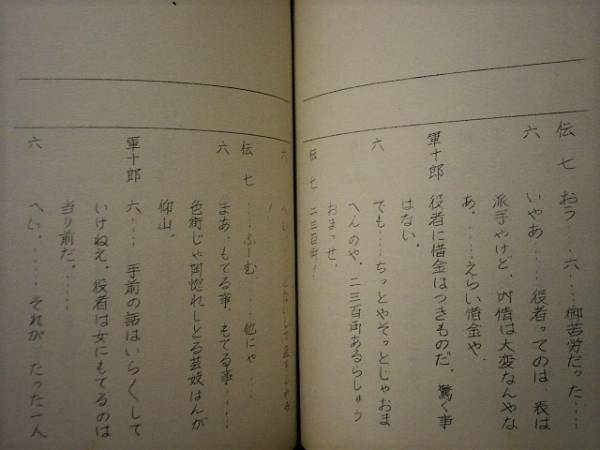 伝七 おう....六....御苦労だった....
六 いやあ.....役者ってのは、表は
派手やけど、内情は大変なんやな
あ。.....えらい借金や、
軍十郎 役者に借金はつきものだ。驚く事
はない。
六 でも.....ちっとやそっとじゃおま
へんのや、二三百両あるらしゅう
おまっせ、
伝七 二三百両！
六 へい
伝七 .....ふーむ、....他にゃ....
六 まあ、もてる事、もてる事.....
色街じゃ岡惚れしとる芸妓はんが
仰山。
軍十郎 六.....手前の話はいらくして
いけねえ。役者は女にもてるのは
当り前だ。....
六 へい。.....それが たった一人